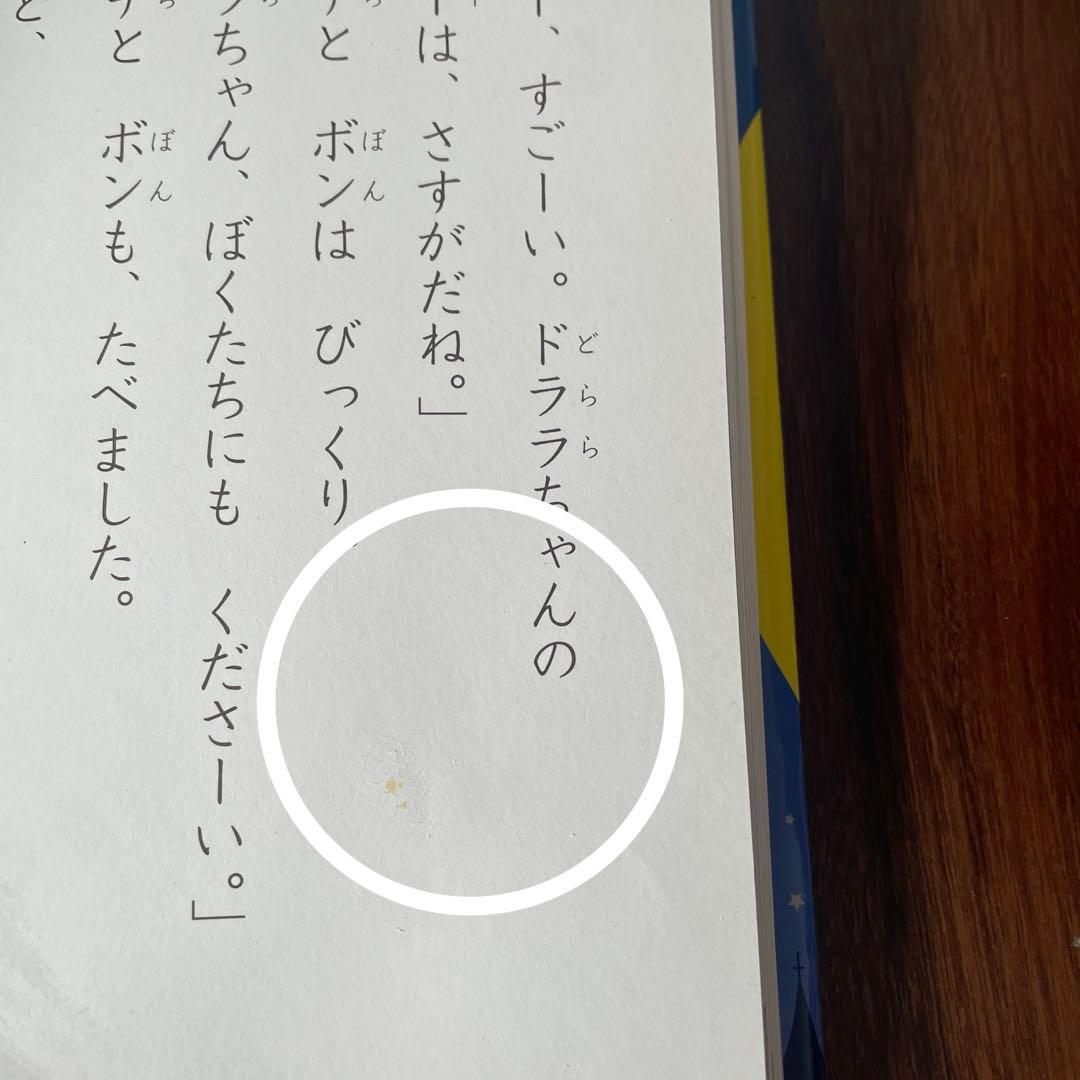 ー、すごーい。ドララちゃんの
どらら
は、さすがだね。」
と ボンは びっくり
ぼん
ちゃん、ぼくたちにも くださーい。」
と ボンも、たべました。
ぼん
と、